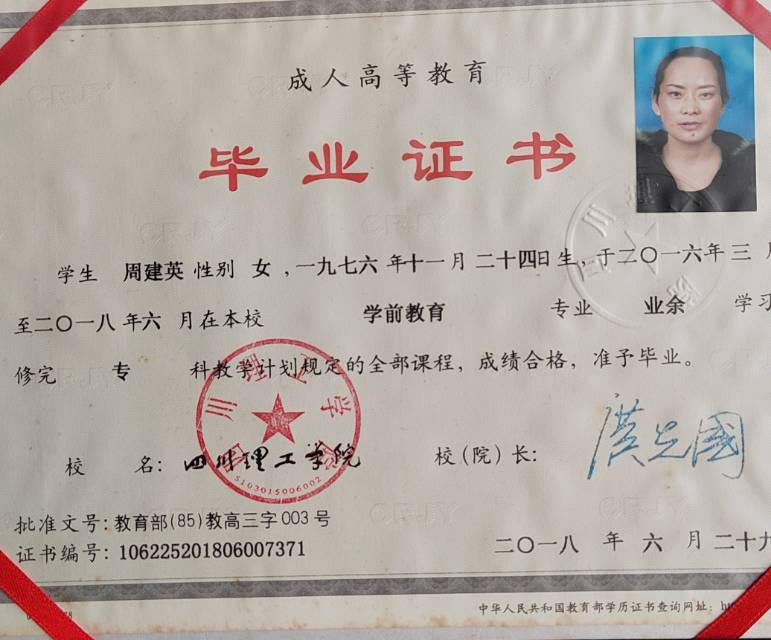 成人高等教育
毕业证书
学生 周建英 性别 女,一九七六年十一月二十四日生,于二〇一六年三
至二〇一八年六月在本校 学前教育 专业 业余 学习
修完 专 科教学计划规定的全部课程,成绩合格,准予毕业。
校 名: 四川理工学院 校(院)长:
批准文号:教育部(85)教高三字003号
证书编号:106225201806007371
二〇一八 年 六 月 二十九
中华人民共和国教育部学历证书查询网址:
四川理工学院
5103015006002